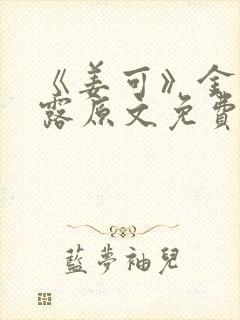 《姜可》金
露原文免費
藍夢袖兒